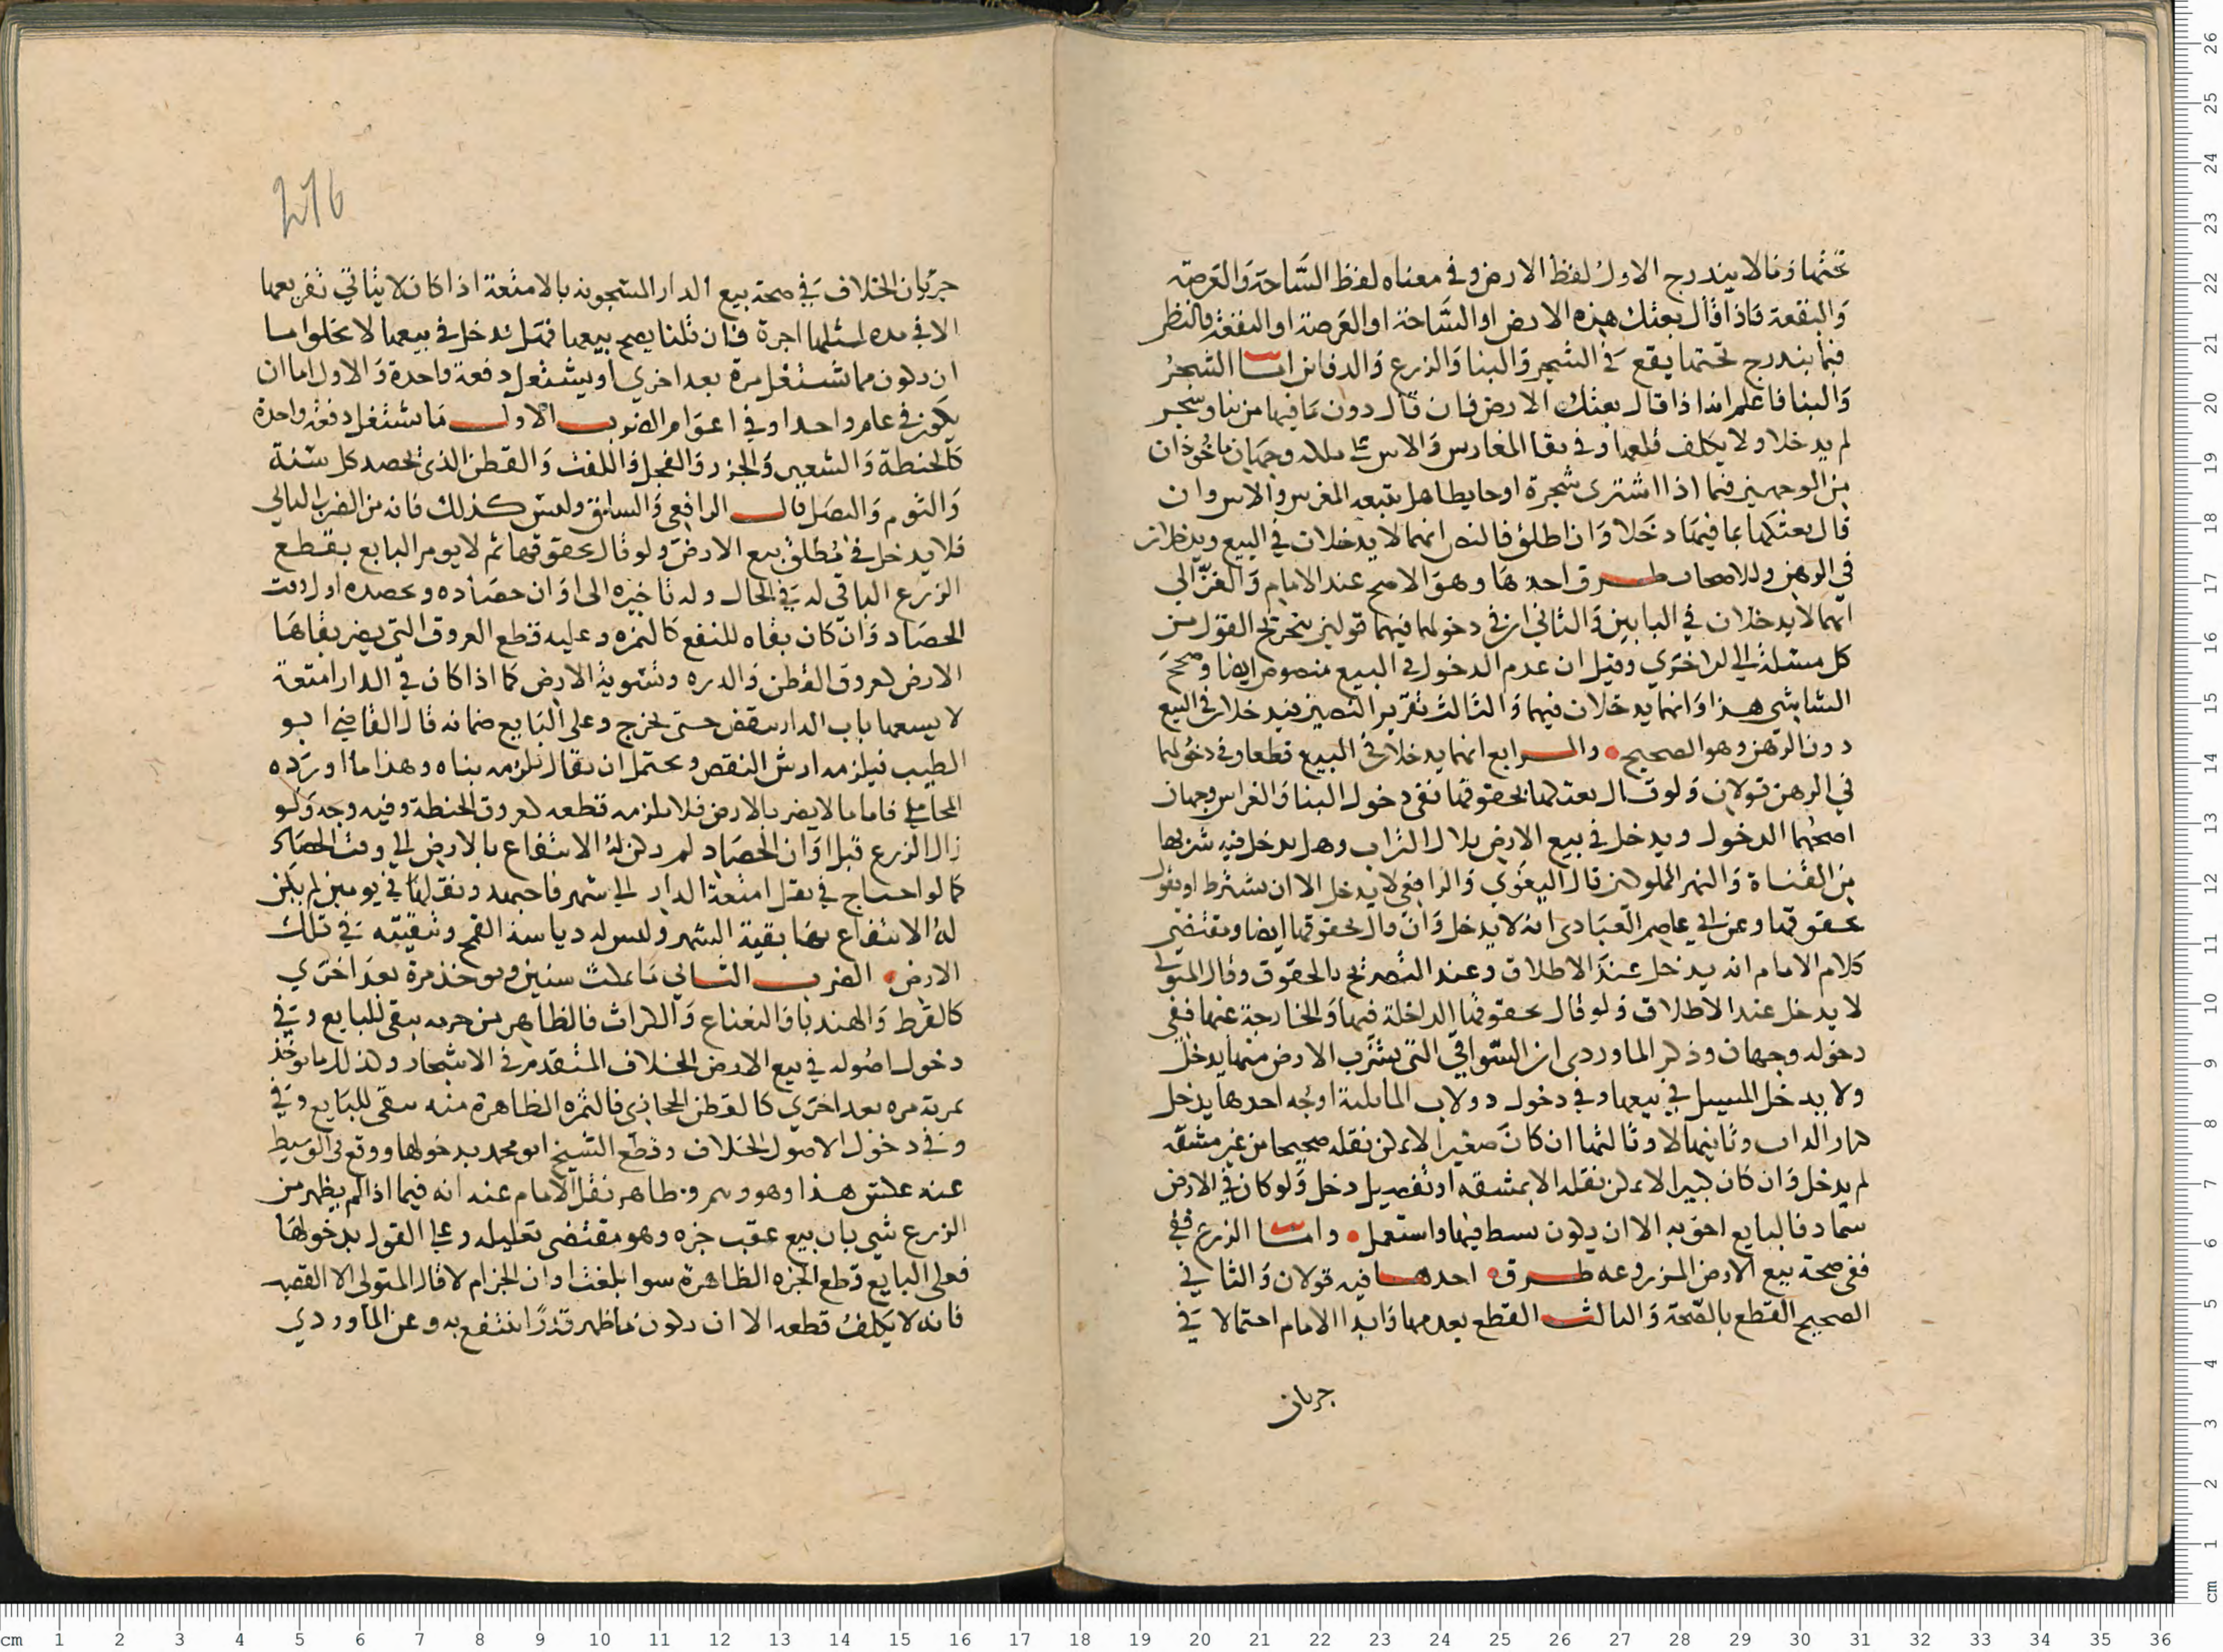 تحتها وما لا يندرج الاول لفظ الارض وفي معناه لفظ الساحة والعرصه
والبقعة فاذا قال بعتك هذه الارض او الساحة او العرصة او البقعة فالنظر
فيما يندرج تحتها يقع في الشجر والبنا والزرع والدفائن اما الشجر
والبنا فاعلم انه اذا قال بعتك الارض فان قال دون ما فيها من بنا وشجر
لم يدخلا ولا يكلف قلعها وفي بقا المغارس والاس على ملكه وجهان ماخوذان
من الوجهين فيما اذا اشترى شجرة او حايطا هل يتبعه المغرس والاس وان
قال بعتكها بما فيها دخلا وان اطلق فالنص انهما لا يدخلان في البيع ويدخلان
في الرهن وللاصحاب طرق احدها وهو الاصح عند الامام والغزالي
انهما لا يدخلان في البابين والثاني ان في دخولهما فيهما قولين بتخريج القول من
كل مسئلة الى الاخرى وقيل ان عدم الدخول في البيع منصوص ايضا وصحح
الشاشي هذا وانهما يدخلان فيهما والثالث تقرير النصين فيدخلان في البيع
دون الرهن وهو الصحيح والرابع انهما يدخلان في البيع قطعا وفي دخولهما
في الرهن قولان ولو قال بعتكها بحقوقها ففي دخول البنا والغراس وجهان
اصحهما الدخول ويدخل في بيع الارض بلا التراب وهل يدخل فيه شربها
من القناة والنهر المملوكين قال البغوي والرافعي لا يدخل الا ان يشترط او يقول
بحقوقها وعن ابي عاصم العبادى انه لا يدخل وان قال بحقوقها ايضا ومقتضى
كلام الامام انه يدخل عند الاطلاق وعند التصريح بالحقوق وقال المتولي
لا يدخل عند الاطلاق ولو قال بحقوقها الداخلة فيها والخارجة عنها ففي
دخوله وجهان وذكر الماوردى ان السواقي التي يشرب الارض منها يدخل
ولا يدخل المسيل في بيعها وفي دخول دولاب المائية اوجه احدها يدخل
وثانيهما لا وثالثها ان كان صغيرا لا يمكن نقله صحيحا من غير مشقه
لم يدخل وان كان كبيرا لا يمكن نقله الا بمشقه او تفصيل دخل ولو كان في الارض
سماد فالبايع احق به الا ان يكون بسط فيها واستعمل واما الزرع ففي
ففي صحة بيع الارض المزروعه طرق احدها فيه قولان والثاني
الصحيح القطع بالصحة والثالث القطع بعدمها وابدا الامام احتمالا في
جريان
216
جريان الخلاف في صحة بيع الدار المشحونه بالامتعة اذا كان لا يتاتي تفريعها
الا في مده لمثلها اجرة فان قلنا يصح بيعها فهل تدخل في بيعها لا تخلوا اما
ان يكون مما يستغل مرة بعد اخري او يشتغل دفعة واحدة والاول اما ان
يكون في عام واحد او في اعوام الضرب الاول ما يستغل دفعه واحدة
كالحنطة والشعير والجزر والفجل واللفت والقطن الذي يحصد كل سنة
والثوم والبصل قال الرافعي والسلق وليس كذلك فانه من الضرب الثاني
فلا يدخل في مطلق بيع الارض ولو قال بحقوقها ثم لا يومر البايع بقطع
الزرع الباقي له في الحال وله تاخيره الى اوان حصاده وبحصده اول وقت
الحصاد وان كان بقاه للنفع كالثمره وعليه قطع العروق التي يضر بقاها
الارض لعروق القطن والدره وتسوية الارض كما اذا كان في الدار امتعة
لا يسعها باب الدار سقض حتى تخرج وعلى البايع ضمانه قال القاضي ابو
الطيب فيلزمه ارش النقص ويحتمل ان يقال يلزمه بناه وهذا ما اورده
المحاملي فاما ما لا يضر بالارض فلا يلزمه قطعه كعروق الحنطة وفيه وجه ولو
زال الزرع قبل اوان الحصاد لم يكن له الانتفاع بالارض الى وقت الحصاد
كما لو احتاج في نقل امتعة الدار الى شهر فاجتهد ونقلها في يومين لم يكن
له الانتفاع بها بقية الشهر وليس له دياسة القمح وتنقيته في تلك
الارض الضرب الثاني ما يمكث سنين ويوخذ مرة بعد اخري
كالقرط والهندبا والنعناع والكراث فالظاهر من جزه يبقى للبايع وفي
دخول اصوله في بيع الارض الخلاف المتقدم في الاشجار وكذلك ما يوخذ
ثمرته مره بعد اخري كالقطن الحجازي فالثمره الظاهرة منه يبقى للبايع وفي
وفي دخول الاصول الخلاف وقطع الشيخ ابو محمد بدخولها ووقع في الوسيط
عنه عكس هذا وهو وهم وظاهر نقل الامام عنه انه فيما اذا لم يظهر من
الزرع شي بان بيع عقب جزه وهو مقتضى تعليله وعلى القول بدخولها
فعلى البايع قطع الجزه الظاهرة سوا بلغت اوان الجز ام لا قال المتولى الا القصب
فانه لا يكلف قطعه الا ان يكون ما ظهر قدرا ينتفع به وعن الماوردي